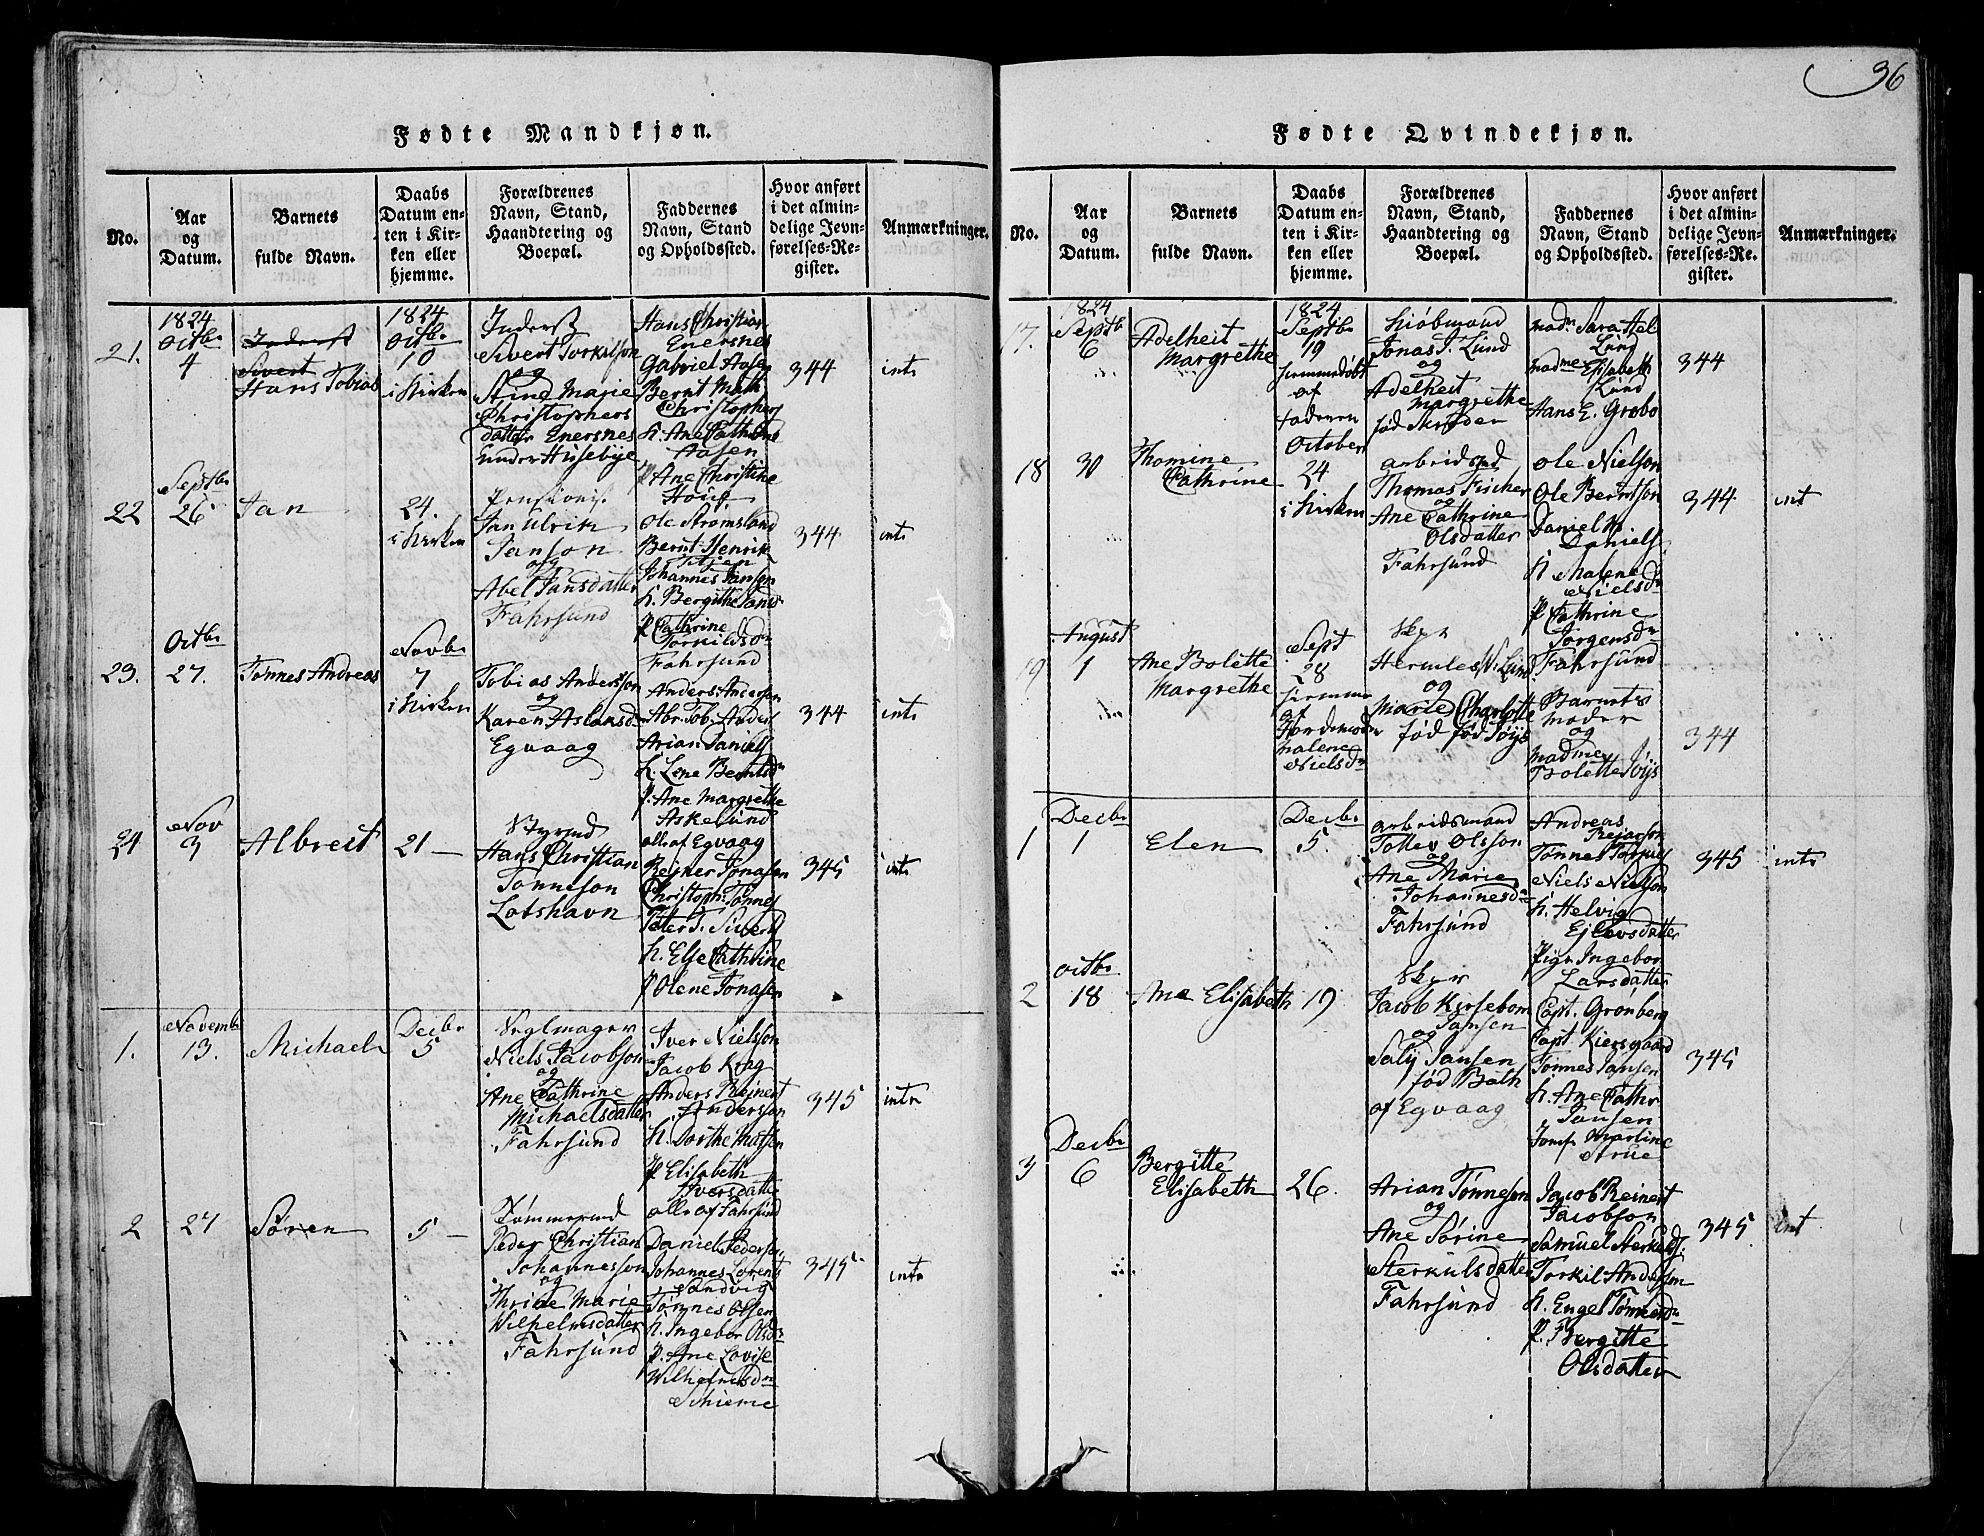 36
Fødte Mandkjøn.
No.
Aar
og
Datum.
Barnets
fulde Navn.
Daabs
Datum en-
ten i Kir-
ken eller
hjemme.
Forældrenes
Navn, Stand,
Haandtering og
Boepæl.
Faddernes
Navn, Stand
og Opholdssted.
Hvor anført
i det almin-
delige Jevn-
førelses-Re-
gister.
Anmærkninger.
21.
1824
Octbr
4
Sivert
Hans Tobias
1824
Octbr
10
i Kirken
Inderst
Sivert Torkilson
og
Stine Marie
Christophers
datter Enersnes
under Huseby
Hans Christian
Enersnes
Gabriel Aasen
Bernt Math
Christophers
K. Ane Cathrine
Aasen
P. Ane Christine
344
int
22
Septbr
26
Jan
24.
i Kirken
Jan Ulrik
Janson
og
Abel Jansdatter
Fahrsund
Ole Strømsland
Bernt Henrik
Johannes Jansen
K. Bergithe Jansd
P. Cathrine
Torkildsdr
Fahrsund
344
int
23.
Octbr
27.
Tønnes Andreas
Novbr
7
i Kirken
Tobias Anderson
og
Karen Aslaksd
Egvaag
Anders Andersen
Abr. Tob. Anders
Arian Daniels
K. Lene Berntsdr
P. Ane Margrethe
Askelund
alle af Egvaag
344
int
24
Nov
3
Albreit
21 —
Styrmd
Hans Christian
Tønneson
Lotshavn
Rejner Jonasen
Christoph. Tønnes
Peter S. Siverts
K. Else Cathrine
P. Olene Jonasen
345
int
1.
Novembr
13.
Michael
Decbr
5
Seglmager
Niels Jacobson
og
Ane Cathrine
Michaelsdatter
Fahrsund
Iver Nielsson
Jacob Krog
Anders Reinert
Anderson
K. Dorthe
P. Elisabeth
Iversdatter
alle af Fahrsund
345
int
2
27
Søren
5 —
Tømmermd
Peder Christian
Johannesson
og
Thrine Marie
Wilhelmsdatter
Fahrsund
Daniel Pederson
Johannes Lorents
Sandvig
Tønnes Olsen
K. Ingebor Olsdr
P. Ane Lovise
Wilhelmsdr
345
int
Fødte Qvindekjøn.
No.
Aar
og
Datum.
Barnets
fulde Navn.
Daabs
Datum en-
ten i Kir-
ken eller
hjemme.
Forældrenes
Navn, Stand,
Haandtering og
Boepæl.
Faddernes
Navn, Stand
og Opholdssted.
Hvor anført
i det almin-
delige Jevn-
førelses-Re-
gister.
Anmærkninger.
17.
1824
Septbr
6
Adelheit
Margrethe
1824
Septbr
19
hjemmedøbt
af
Faderen
Kiøbmand
Jonas J. Lund
og
Adelheit
Margrethe
fød
madm Sara Hel
Lund
madme Elisabeth
Lund
Hans E. Grobo
344
18
30
Thomine
Cathrine
October
24
i Kirken
arbeidsmd
Thomas Fischer
og
Ane Cathrine
Olsdatter
Fahrsund
Ole Nielson
Ole Berntson
Daniel M
Daniels
K. Malene
Nielsdr
P. Cathrine
Jørgensdr
Fahrsund
344
int
19
August
1
Ane Bolette
Margrethe
Sept
28
hjemme
af
malene
Nielsdr
Skpr
Hermules W. Lund
og
Marie Charlotte
fød fød
Barnets
moder
og
madme
Bolette
344
1
Decbr
1
Elen
Decbr
5.
arbeidsmand
Tollev Olsson
og
Ane Marie
Johannesdr
Fahrsund
Andreas
Rejerson
Tønnes
Niels Nielson
K. Helvig
Ejlevsdatter
Pige Ingebor
Larsdatter
345
int
2
Octbr
18
Ane Elisabeth
19
Skpr
Jacob Korsebom
Jansen
og
Saly Jansen
fød Bath
af Egvaag
Capt. Grønberg
Capt Kiersgaard
Tønnes Jansen
K. Ane Cathr
Jansen
Jomf. Martine
Strue
345
3
Decbr
6
Bergitte
Elisabeth
26.
Arian Tønneson
og
Ane Sørine
Sterkulsdatter
Fahrsund
Jacob Reinert
Jacobson
Samuel
Torkil Anderson
K. Engel Tønnesdr
P. Bergitte
Olsdatter
345
int